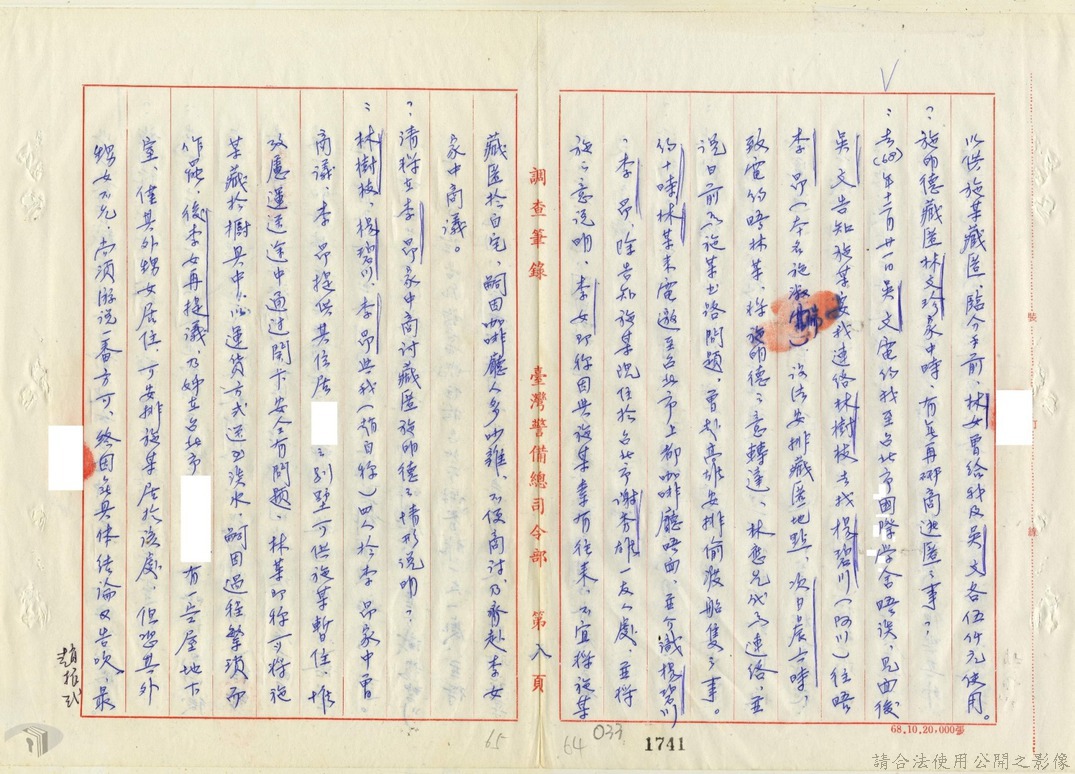 以供施某藏匿,臨分手前,林女曾給我及吳 文各伍仟元使用。
?施明德藏匿林文珍家中時,有無再研商逃匿之事?
:去(68)年十二月廿一日吳 文電約我至台北市國際学舍晤談,見面後
吳 文告知施某要我連絡林樹枝去找楊碧川(阿川)往晤
李 昂(本名施淑端),設法安排藏匿地點,次日晨六時,
致電約晤林某,將施明德之意轉達,林應允代為連絡,並
說日前為施某出路問題,曾赴 安排偷渡船隻之事。
約十時林某來電邀至台北市上都咖啡廳晤面,並介識楊碧川
、李 昂,除告知施某現住於台北市謝秀雄一友人處,並將
施之意說明,李女即称因與施某素有往來,不宜將施某
調查筆錄 臺灣警備總司令部 第 八 頁
藏匿於自宅,嗣因咖啡廳人多吵雜,不便商討,乃齊赴李女
家中商議。
?請称在李 昂家中商討藏匿施明德之情形說明?
:林樹枝、楊碧川、李 昂與我(趙自称)四人於李 昂家中曾
商議,李 昂提供其住居 之別墅可供施某暫住,惟
改慮運送途中通过關卡安全有問題,林某即称可將施
某藏於櫥具中以運貨方式送至淡水,嗣因過程繁瑣而
作罷,後李女再提議,乃姊在台北市 有一空屋地下
室,僅其外甥女居住,可安排施某居於該處,但恐其外
甥女不允,尚須游說一番方可,終因無具体結論又告吹,最
趙振貳
68.10.20,000張
裝 訂 線
033
64
65
1741
請合法使用公開之影像